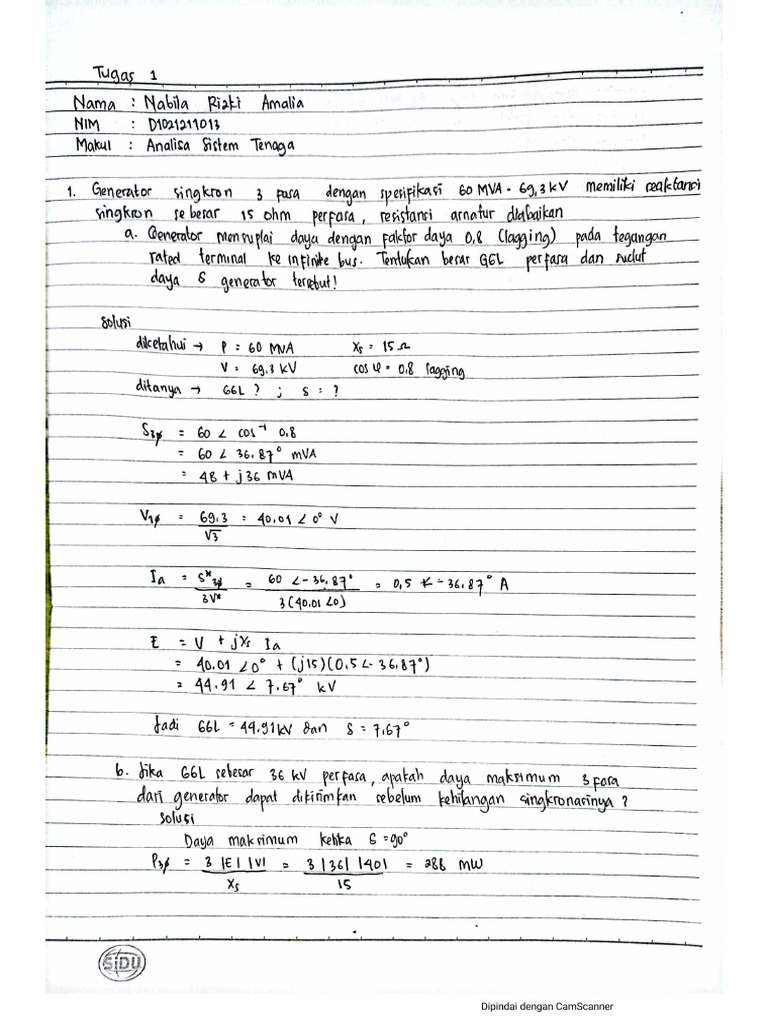 Tugas 1
Nama : Nabila Rizki Amalia
NIM : D1021211013
Makul : Analisa Sistem Tenaga
1. Generator singkron 3 fasa dengan spesifikasi 60 MVA - 69,3 kV memiliki reaktansi
singkron sebesar 15 ohm perfasa, resistansi armatur diabaikan
a. Generator mensuplai daya dengan faktor daya 0,8 (lagging) pada tegangan
rated terminal ke infinite bus. Tentukan besar GGL perfasa dan sudut
daya δ generator tersebut!
Solusi
diketahui → P = 60 MVA Xs = 15 Ω
V = 69,3 kV cos φ = 0.8 lagging
ditanya → GGL ? ; δ = ?
S3φ = 60 ∠ cos⁻¹ 0.8
= 60 ∠ 36.87° MVA
= 48 + j36 MVA
V1φ = 69.3 / √3 = 40.01 ∠ 0° V
Ia = S*3φ / 3V* = 60 ∠-36.87° / 3(40.01 ∠0) = 0,5 ∠-36.87° A
E = V + jXs Ia
= 40.01 ∠0° + (j15)(0.5 ∠-36.87°)
= 44.91 ∠ 7.67° kV
Jadi GGL = 44.91 kV dan δ = 7.67°
b. Jika GGL sebesar 36 kV perfasa, apakah daya maksimum 3 fasa
dari generator dapat dikirimkan sebelum kehilangan singkronasinya ?
Solusi
Daya maksimum ketika δ = 90°
P3φ = 3 |E| |V| / Xs = 3 |36| |40| / 15 = 288 MW
SiDU
Dipindai dengan CamScanner